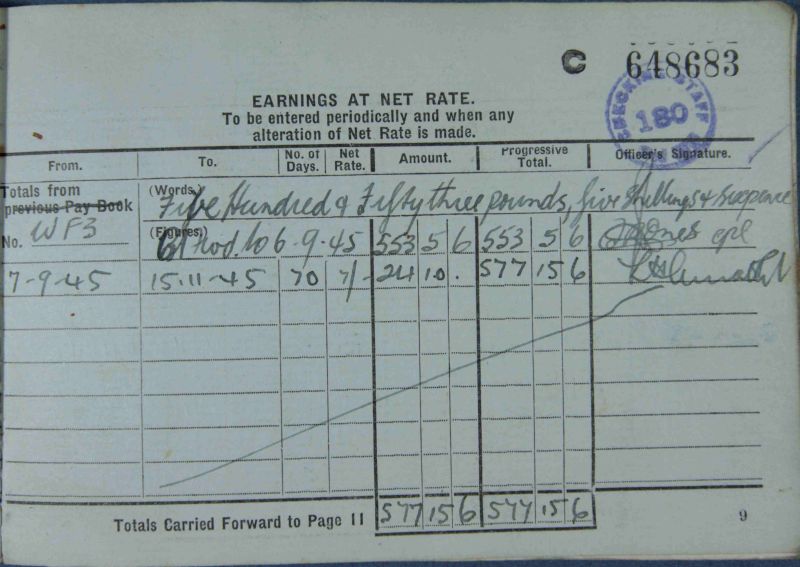 C 648683
CHECKING STAFF
180
EARNINGS AT NET RATE.
To be entered periodically and when any
alteration of Net Rate is made.
From. To. No. of Days. Net Rate. Amount. Progressive Total. Officer's Signature.
Totals from previous Pay Book (Words.) Five Hundred & Fifty three pounds, five shillings & sixpence
No. WF3 (Figures.) to 6-9-45 553 5 6 553 5 6 cpl
7-9-45 15-11-45 70 7/- 24 10 . 577 15 6
Totals Carried Forward to Page 11 577 15 6 577 15 6
9